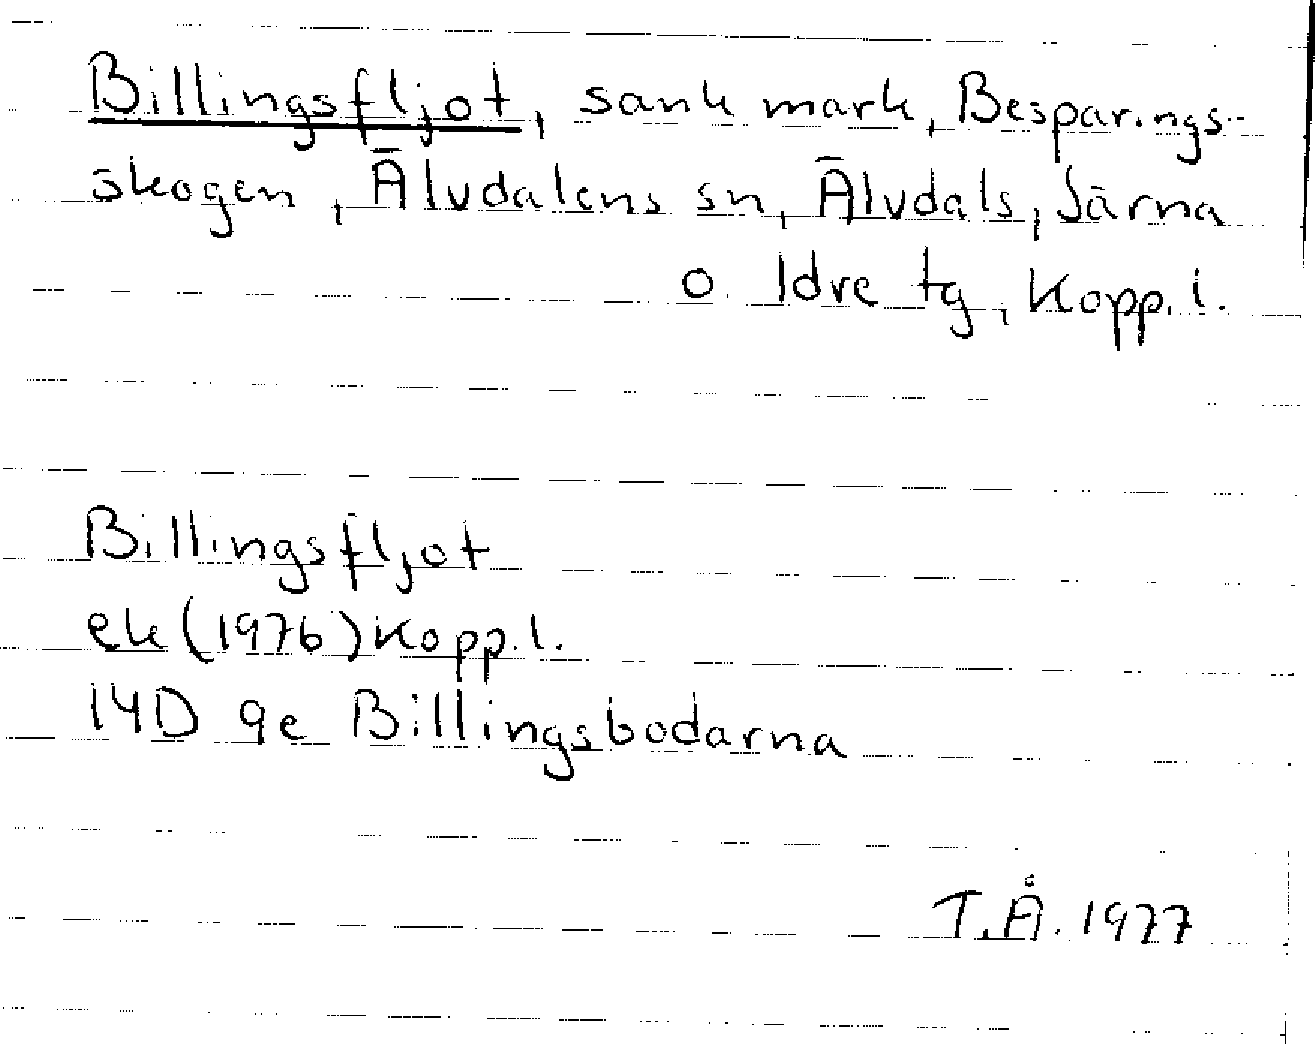 Billingsfljot, sank mark, Besparings-
skogen, Älvdalens sn, Älvdals, Särna
o Idre tg, Kopp.l.
Billingsfljot
ek (1976) Kopp.l.
14D 9e Billingsbodarna
T.Å. 1977